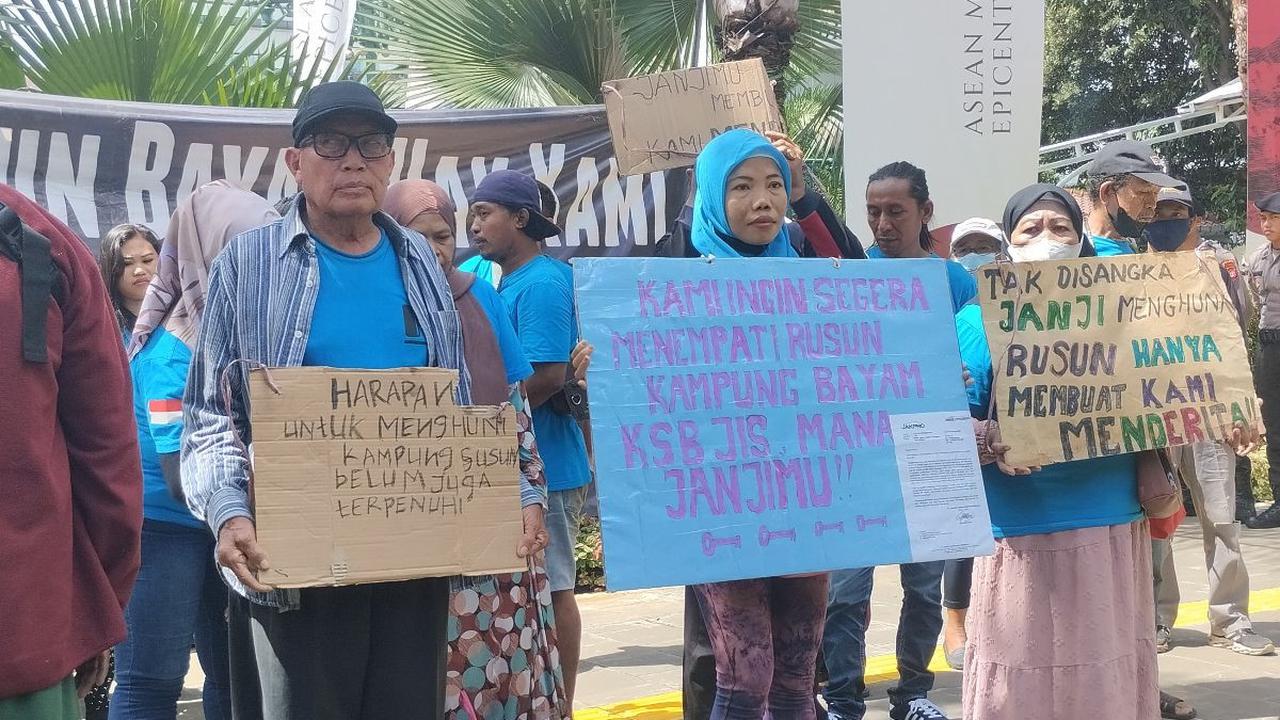 ASEAN M
EPICENT
JANJIMU
MEMB
KAMI MEN
UN BAYA HAK KAMI
HARAPAN
UNTUK MENGHUNI
KAMPUNG SUSUN
BELUM JUGA
TERPENUHI
KAMI INGIN SEGERA
MENEMPATI RUSUN
KAMPUNG BAYAM
KSB JIS, MANA
JANJIMU!!
JAKPRO
TAK DISANGKA
JANJI MENGHUNI
RUSUN HANYA
MEMBUAT KAMI
MENDERITA!!